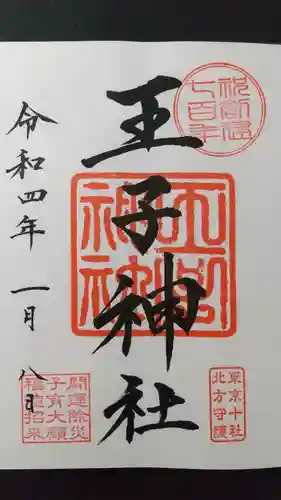 祝御鎮座
七百年
王子神社
王子神社
東京十社
北方守護
令和四年一月八日
開運除災
子育大願
福徳招来